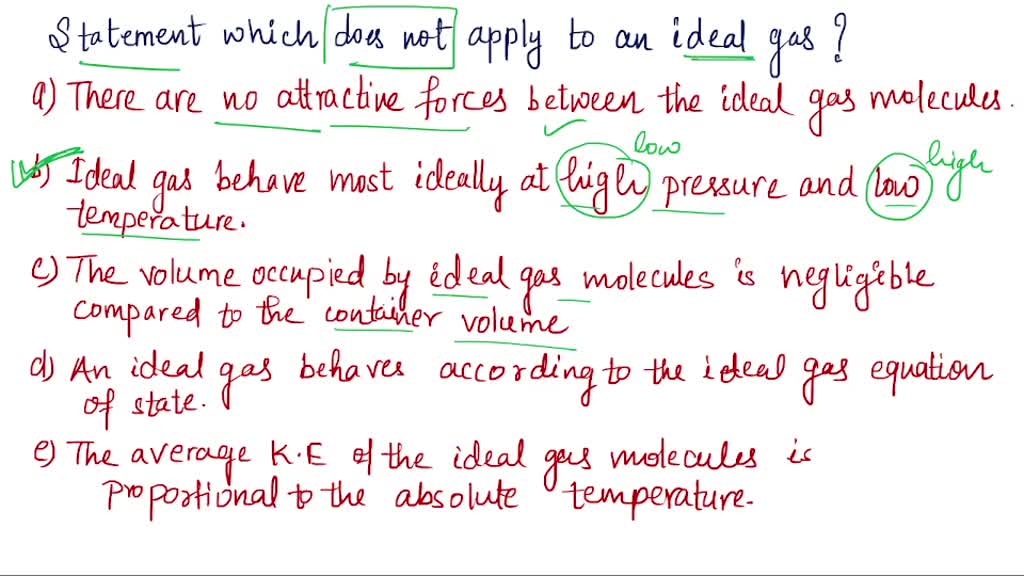 Statement which does not apply to an ideal gas?
a) There are no attractive forces between the ideal gas molecules.
low
high
b) Ideal gas behave most ideally at high pressure and low
temperature.
c) The volume occupied by ideal gas molecules is negligible
compared to the container volume
d) An ideal gas behaves according to the ideal gas equation
of state.
e) The average K.E of the ideal gas molecules is
proportional to the absolute temperature.